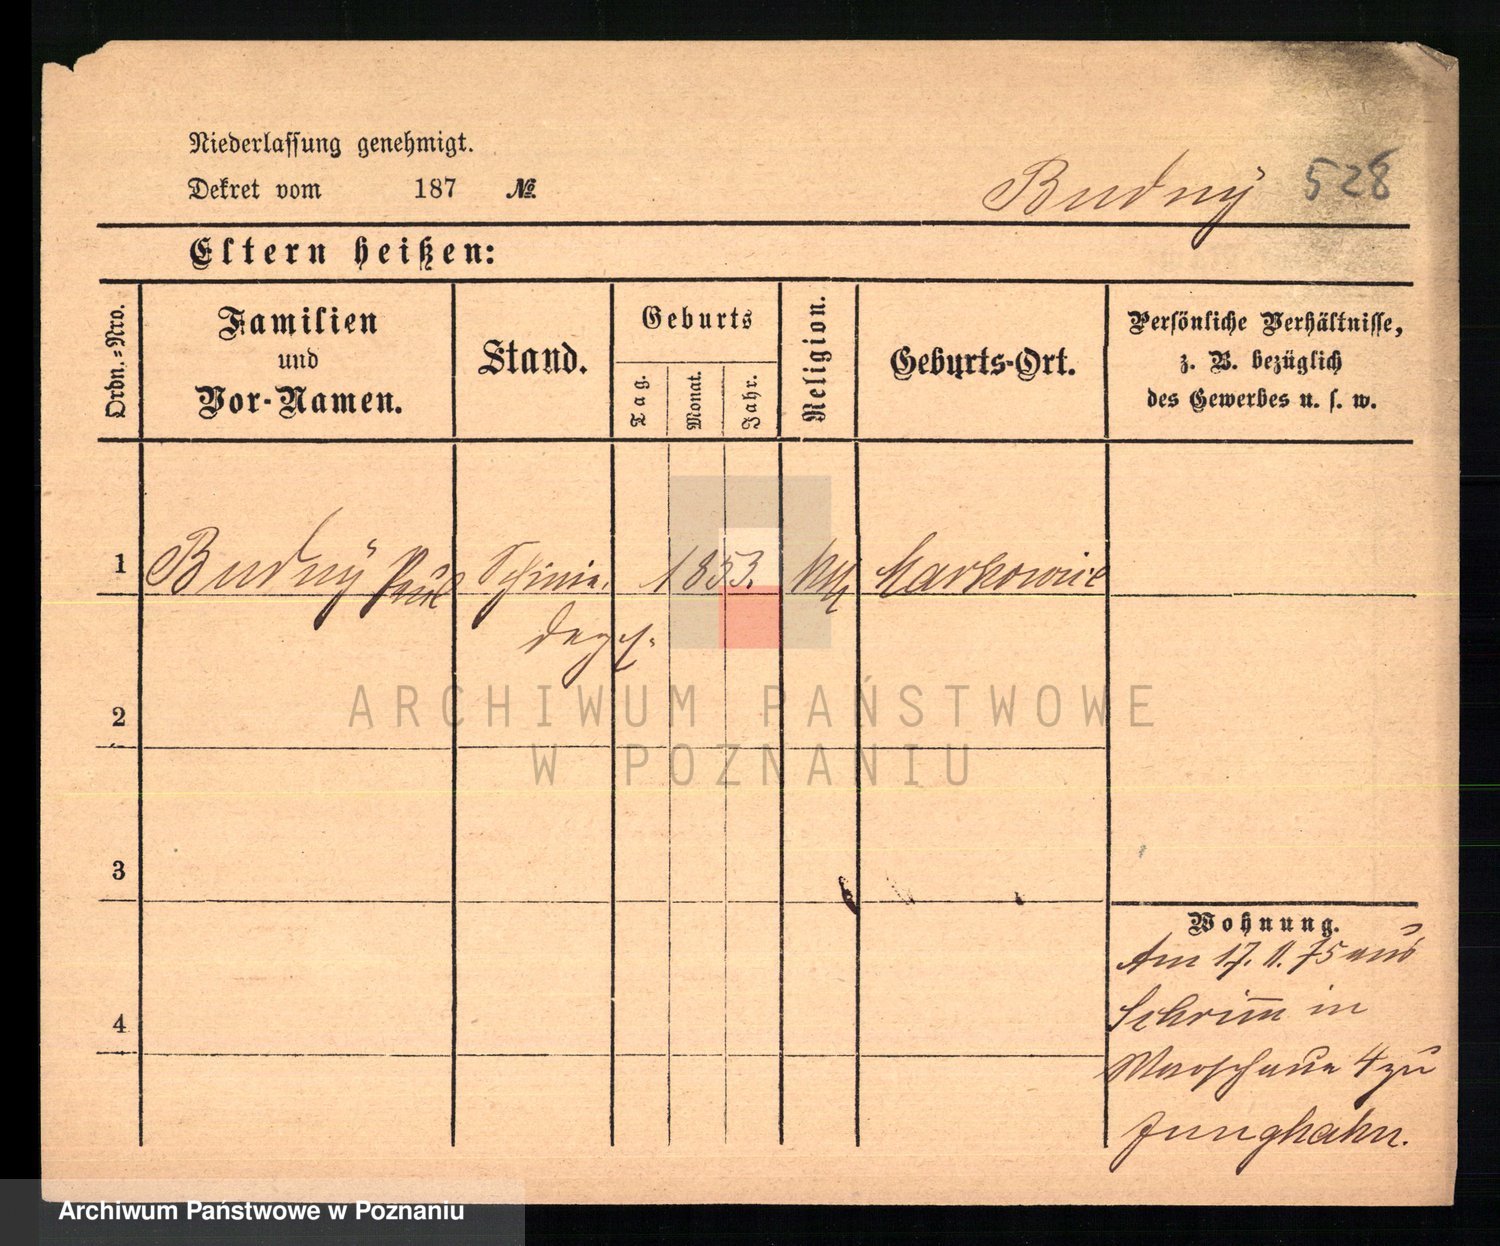 Niederlassung genehmigt.
Dekret vom 187 №
Budnÿ 528
Eltern heißen:
Ordn.-Nro.
Familien
und
Vor-Namen.
Stand.
Geburts
Tag.
Monat.
Jahr.
Religion.
Geburts-Ort.
Persönliche Verhältnisse,
z. B. bezüglich
des Gewerbes u. s. w.
1 Budnÿ Paul 1853. kth Markowice
2
3
4
Wohnung.
Am 17. 11. 75 aus
Schrim̅ in
4 zu
Junghahn.
ARCHIWUM PAŃSTWOWE
W POZNANIU
Archiwum Państwowe w Poznaniu